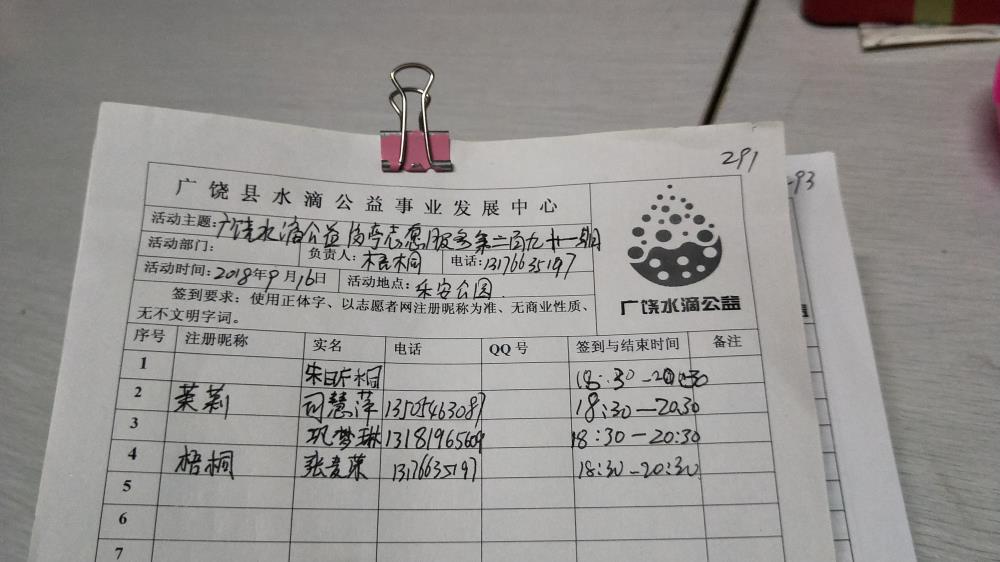 291
293
广饶县水滴公益事业发展中心
活动主题:广饶水滴公益岗亭志愿服务第二百九十一期
活动部门: 负责人:梧桐 电话:13176635197
活动时间:2018年9月16日 活动地点:乐安公园
签到要求:使用正体字、以志愿者网注册昵称为准、无商业性质、
无不文明字词。
广饶水滴公益
序号 注册昵称 实名 电话 QQ号 签到与结束时间 备注
1 18:30-20:30
2 茉莉 司慧萍 13505463087 18:30-20:30
3 巩梦琳 13181965609 18:30-20:30
4 梧桐 13176635197 18:30-20:30
5
6
7